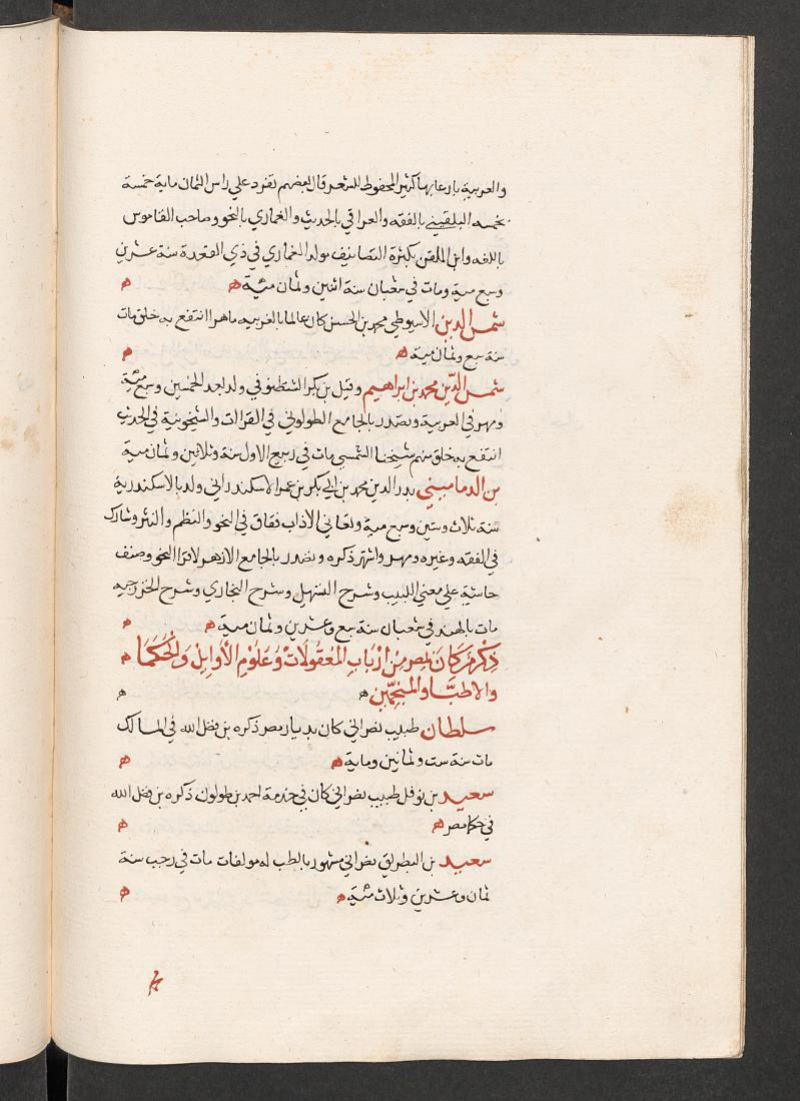 والعربية بارعا بها كثير المحفوظ للشعر قال بعضهم تفرد علي راس الثمان ماية خمسة
بخمسه البلقيني بالفقه والعراقي بالحديث والغماري بالنحو وصاحب القاموس
باللغه وابن الملقن بكثرة التصانيف مولد الغماري في ذي القعدة سنة عشرين
وسبع مية ومات في شعبان سنة اثنين وثمان مئية
شمس الدين الاسيوطي محمد بن الحسن كان عالما بالعربيه ماهرا انتفع به خلق مات
سنة سبع وثمان مية
شمس الدين محمد بن ابراهيم وقيل بن بكر الشطنوفي ولد بعد الخمسين وسبع مئية
ومهر في العربية وتصدر بالجامع الطولوني في القراات والشيخونية في الحديث
انتفع به خلق منهم شيخنا الشمسي مات في ربيع الاول سنة وثلاثين وثمان مية
بن الدماميني بدر الدين محمد بن ابي بكر بن عمر الاسكندراني ولد بالاسكندرية
سنة ثلاث وستين وسبع مية وتعاني الاداب ففاق في النحو والنظم والنثر وشارك
في الفقه وغيره ومهر واشتهر ذكره وتصدر بالجامع الازهر لاقرا النحو وصنف
حاشية علي مغني اللبيب وشرح التسهيل وشرح البخاري وشرح الخزرجيه
مات بالهند في شعبان سنة سبع وعشرين وثمان مية
ذكر من كان بمصر من ارباب المعقولات وعلوم الاوايل والحكما
والاطبا والمنجمين
سلطان طبيب نصراني كان بديار مصر ذكره بن فضل الله في المسالك
مات سنة ست وثمانين وماية
سعيد بن نوفل طبيب نصراني كان في خدمة احمد بن طولون ذكره بن فضل الله
في حكما مصر
سعيد بن البطريق نصراني مشهور بالطب له مولفات مات في رجب سنة
ثمان وعشرين وثلاث مئية